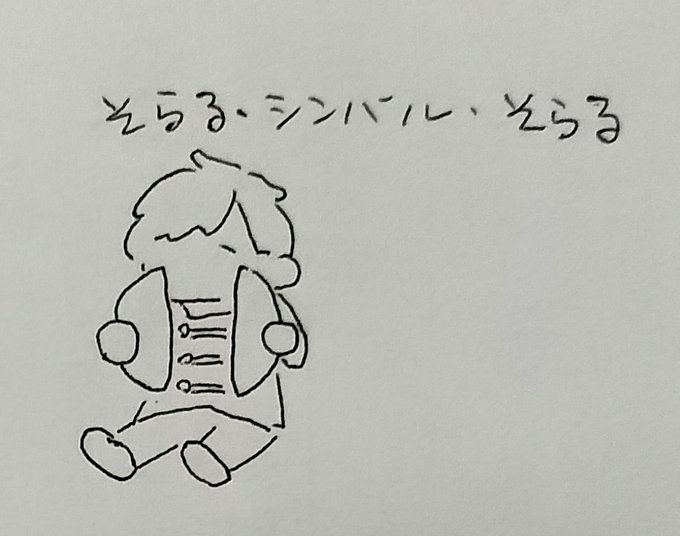 そらる・シンバル・そらる